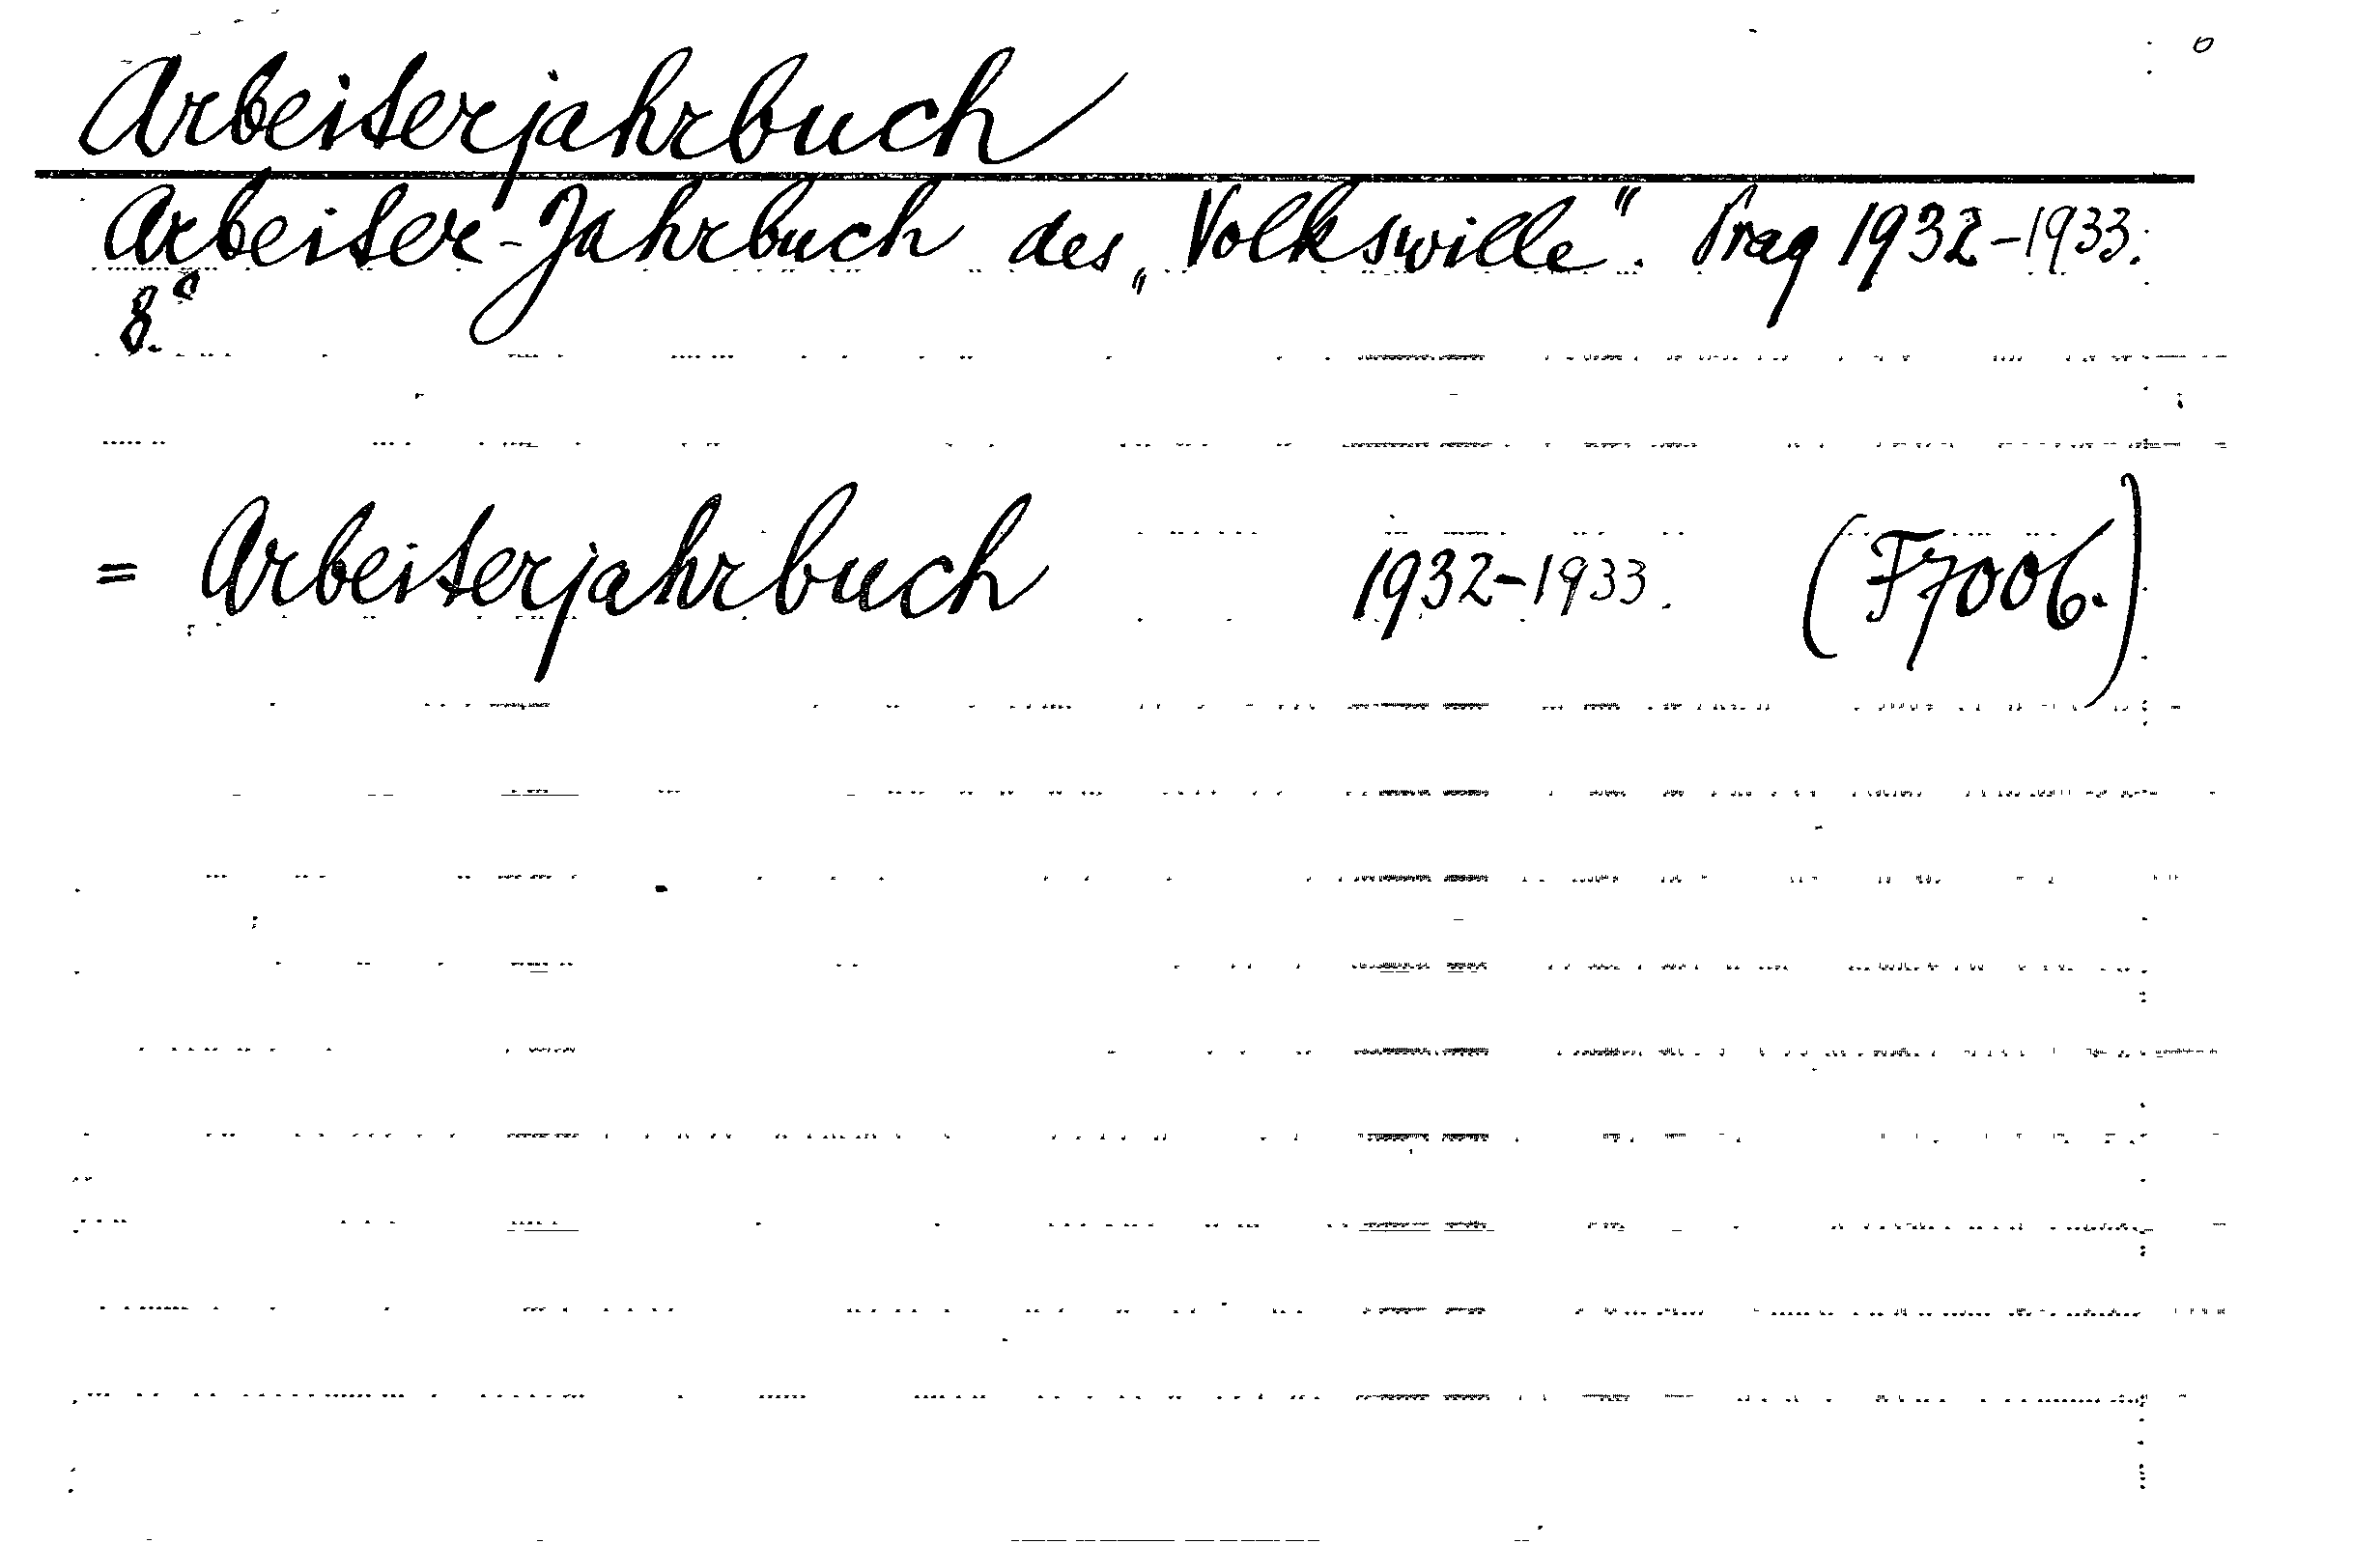 Arbeiterjahrbuch
Arbeiter-Jahrbuch des „Volkswille“. Prag 1932-1933.
8.°
= Arbeiterjahrbuch 1932-1933. (F7006.)